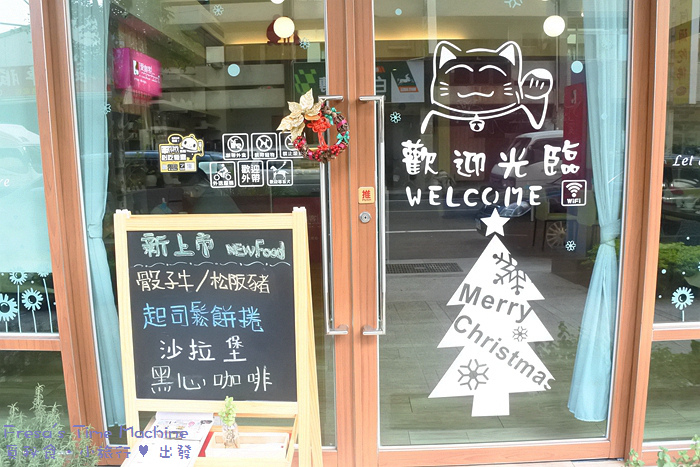 歡迎光臨
WELCOME
WiFi
推
Merry
Christmas
新上市 NEWFood
骰子牛/松阪豬
起司鬆餅捲
沙拉堡
黑心咖啡
歡迎
外帶
Let
Freya's Time Machine